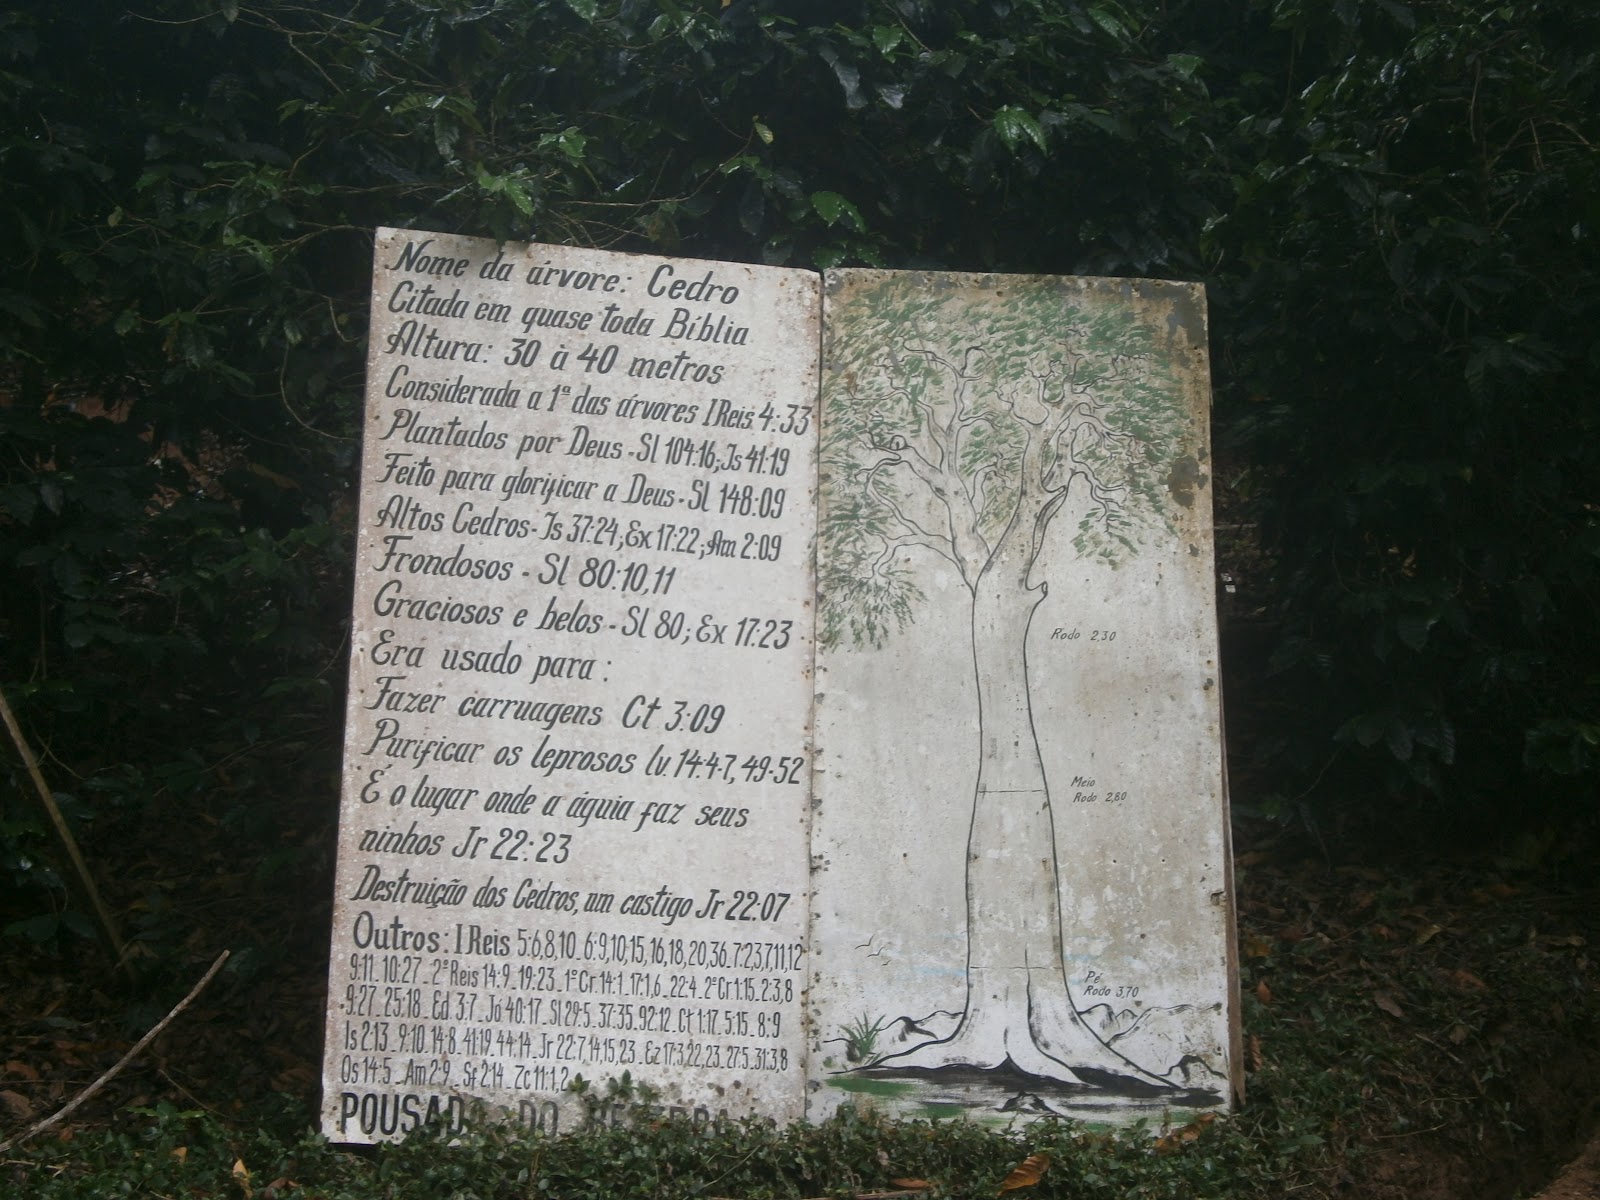 Nome da árvore: Cedro
Citada em quase toda Bíblia
Altura: 30 à 40 metros
Considerada a 1ª das árvores I Reis 4:33
Plantados por Deus - Sl 104:16; Is 41:19
Feito para glorificar a Deus - Sl 148:09
Altos Cedros - Is 37:24; Ex 17:22; Am 2:09
Frondosos - Sl 80:10,11
Graciosos e belos - Sl 80; Ex 17:23
Era usado para:
Fazer carruagens Ct 3:09
Purificar os leprosos lv. 14:4-7, 49-52
É o lugar onde a águia faz seus
ninhos Jr 22:23
Destruição dos Cedros, um castigo Jr 22:07
Outros: I Reis 5:6,8,10_ 6:9,10,15,16,18,20,36_7:2,3,7,11,12
9:11_10:27_2ª Reis 14:9_19:23_1º Cr 14:1_17:1,6_22:4_2º Cr 1:15_2:3,8
9:27_25:18_Ed 3:7_Jó 40:17_Sl 29:5_37:35_92:12_Ct 1:17_5:15_8:9
Is 2:13_9:10_14:8_41:19_44:14_Jr 22:7,14,15,23_Ez 17:3,22,23_27:5_31:3,8
Os 14:5_Am 2:9_Sf 2:14_Zc 11:1,2
POUSADA DO
Rodo 2,30
Meio
Rodo 2,80
Pé
Rodo 3,70